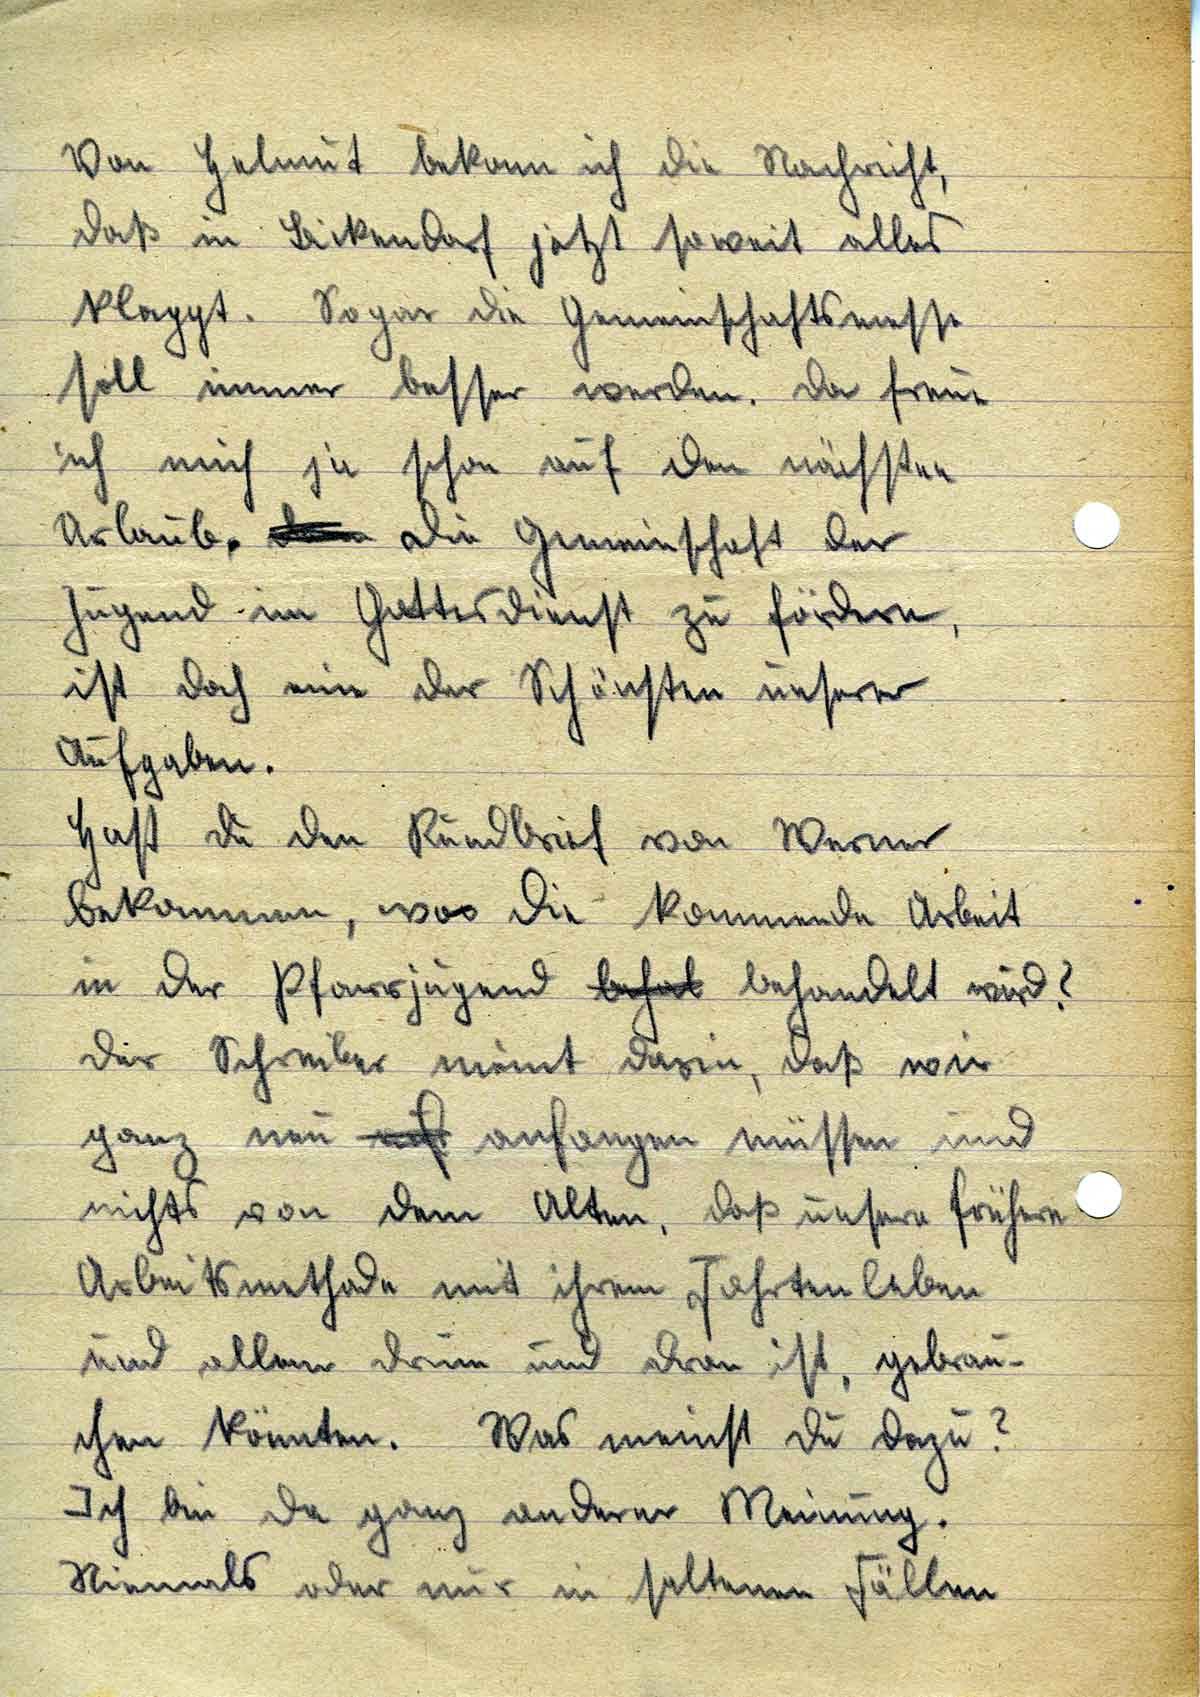 Von Helmut bekam ich die Nachricht,
daß in Bickendorf jetzt soweit alles
klappt. Sogar die Gemeinschaftsmesse
soll immer besser werden. Da freue
ich mich ja schon auf den nächsten
Urlaub. Die Gemeinschaft der
Jugend im Gottesdienst zu fördern,
ist doch eine der Schönsten unserer
Aufgaben.
Hast du den Rundbrief von Werner
bekommen, wo die kommende Arbeit
in der Pfarrjugend behandelt wird?
Der Schreiber meint darin, daß wir
ganz neu anfangen müssen und
nichts von dem Alten, daß unsere frühere
Arbeitsmethode mit ihrem Fahrtenleben
und allem drum und dran ist, gebrau-
chen könnten. Was meinst du dazu?
Ich bin da ganz anderer Meinung.
Niemals oder nur in seltenen Fällen